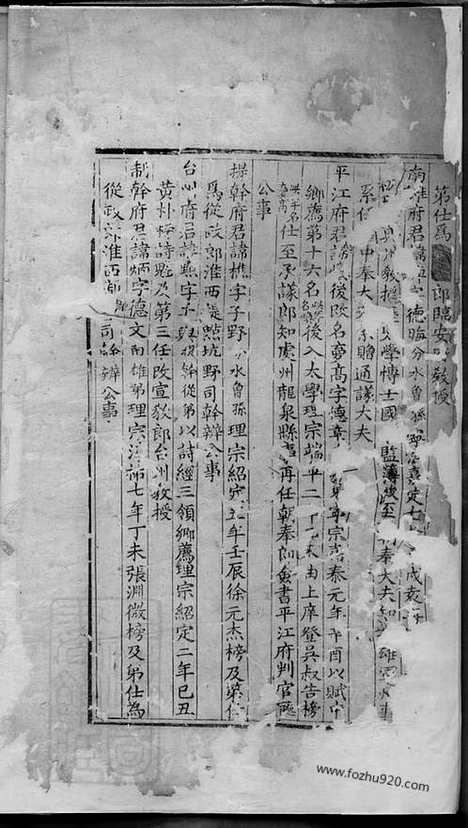 第仕爲郎臨安教授
南雄府君諱字德晦分水魯孫嘉定七戌
教授學博士國監簿後至朝奉大夫知雄
系中奉大贈通議大夫
平江府君諱後改名高字德章寧宗嘉泰元年辛酉以賦中
鄉薦第十六名後入太學理宗端平二由上庠登吳叔告榜
仕至承議郎知處州龍泉縣再任朝奉郎僉書平江府判官廳
公事
提幹府君諱樵字子野水魯孫理宗紹定五年壬辰徐元杰榜及第仕
爲從政郎淮西提點坑野司幹辦公事
台州府君諱字從弟以詩經三領鄉薦理宗紹定二年己丑
黃朴榜詩魁及第三任改宣教郎台州教授
制幹府君諱炳字德文南雄弟理宗淳祐七年丁未張淵微榜及第仕爲
從政郎淮西制司幹辦公事
www.fozhu920.com